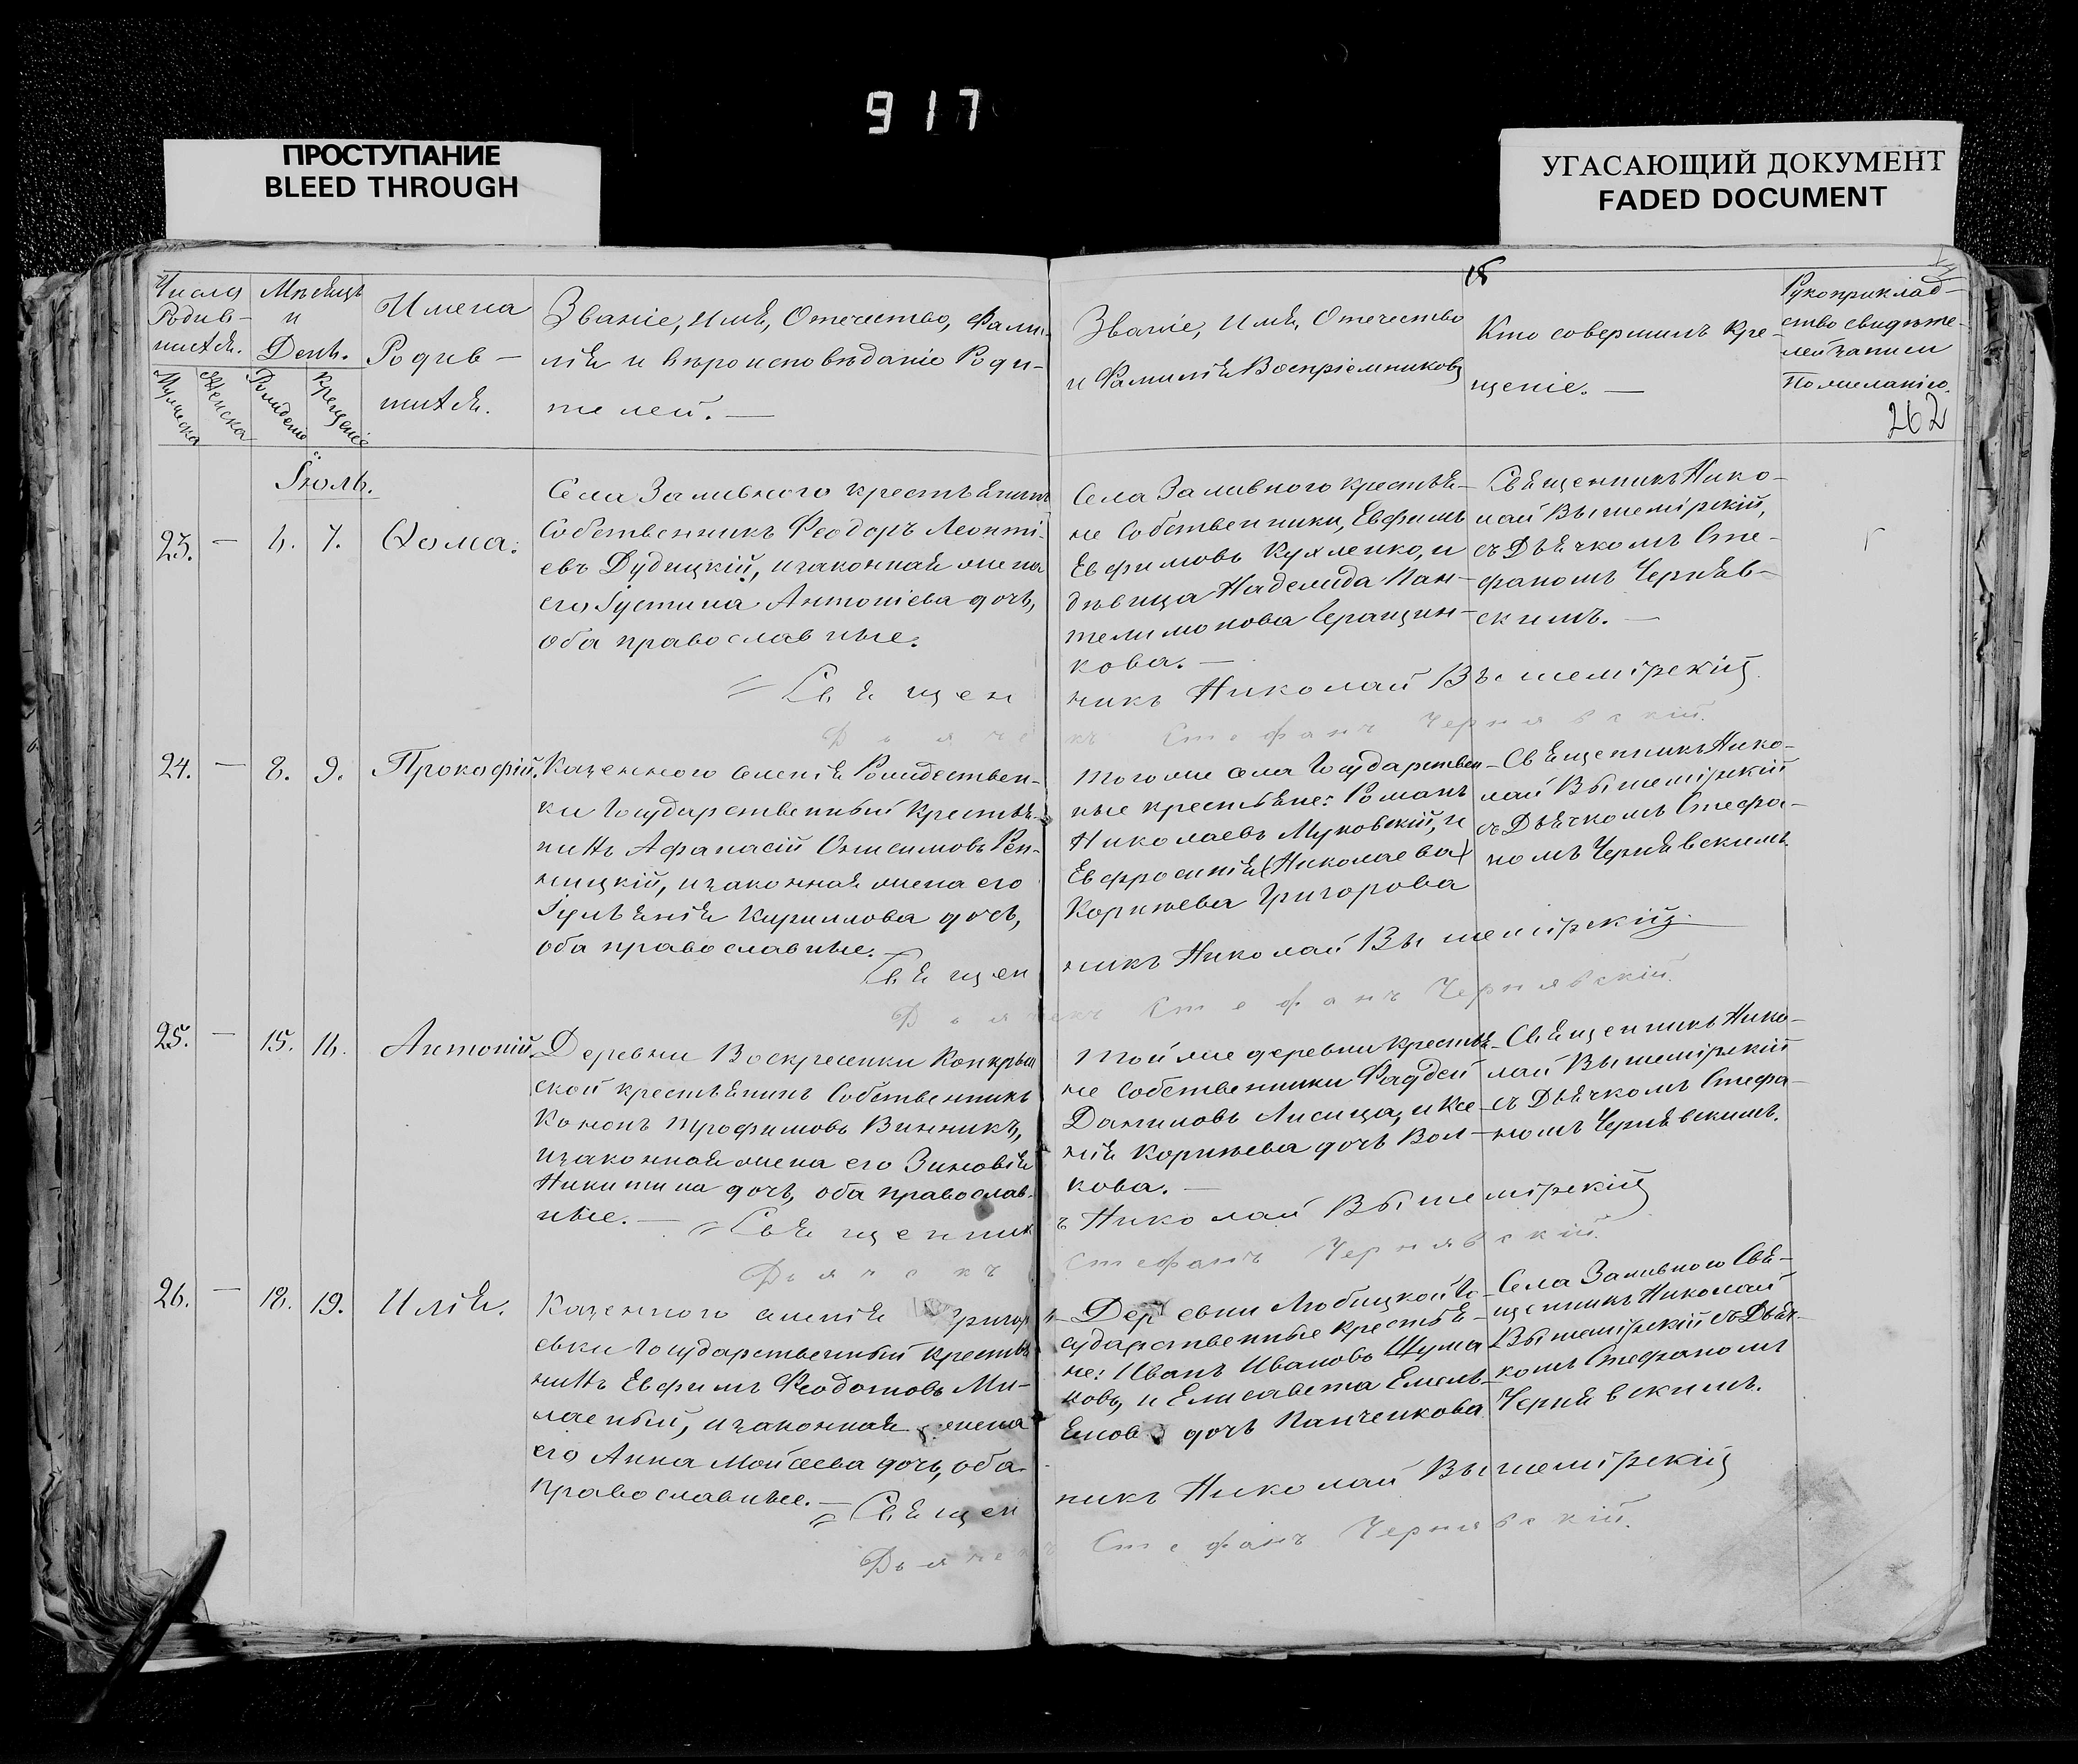 917
ПРОСТУПАНИЕ
BLEED THROUGH
УГАСАЮЩИЙ ДОКУМЕНТ
FADED DOCUMENT
Числа
Родив-
шихся.
Мужеска
Женска
Мѣсяцъ
и
День.
Рожденіе
Крещеніе
Имена
Родив-
шихся.
Званіе, Имя, Отечество, Фами-
лія и вѣроисповѣданіе Роди-
телей. —
Званіе, Имя, Отечество
и Фамилія Воспріемниковъ
Кто совершилъ кре-
щеніе. —
Рукоприклад-
ство свидѣте-
лей записи
по желанію.
262
Іюль.
23. — 6. 7. Ѳома.
Села Заливного крестьянинъ
Собственникъ Феодоръ Леонті-
евъ Дудицкій, и законная жена
его Іустина Антоніева дочь,
оба православные.
Села Заливного крестья-
не Собственники, Евфимъ
Евфимовъ Кухленко, и
дѣвица Надежда Пан-
телимонова Геращин-
кова. —
Священникъ Нико-
лай Вышемірскій,
съ Дьячкомъ Сте-
фаномъ Черняв-
скимъ. —
Священникъ Николай Вышемірскій
Дьячекъ Стефанъ Чернявскій.
24. — 8. 9. Прокофій.
Казенного селенія Рождествен-
ки Государственный Крестья-
нинъ Афанасій Онисимовъ Реп-
ницкій, и законная жена его
Іуліянія Кириллова дочь,
оба православные.
Того же села Государствен-
ные крестьяне: Романъ
Николаевъ Муковскій, и
Евфросинія (Николаева)
Корнѣева Григорова
Священникъ Нико-
лай Вышемірскій
съ Дьячкомъ Стефа-
номъ Чернявскимъ.
Священникъ Николай Вышемірскій
Дьячекъ Стефанъ Чернявскій.
25. — 15. 16. Антоній.
Деревни Воскресенки
ской крестьянинъ Собственникъ
Кононъ Трофимовъ Винникъ,
и законная жена его Зиновія
Никитина дочь, оба православ-
ные. —
Той же деревни крестья-
не Собственники Фаддей
Даниловъ Лисица, и Ксе-
нія Корнѣева дочь Вол-
кова. —
Священникъ Нико-
лай Вышемірскій
съ Дьячкомъ Стефа-
номъ Чернявскимъ.
Священникъ Николай Вышемірскій
Дьячекъ Стефанъ Чернявскій.
26. — 18. 19. Илія.
Казенного селенія Григорь-
евки Государственный крестья-
нинъ Евфимъ Феодотовъ Ми-
лаеный, и законная жена
его Анна Мойсеева дочь, оба
православные. —
Деревни Любицкой Го-
сударственные крестья-
не: Иванъ Ивановъ Шума
ковъ, и Елисавета Емель-
янова дочь Панченкова
Села Заливного Свя-
щенникъ Николай
Вышемірскій съ Дьяч-
комъ Стефаномъ
Чернявскимъ.
Священникъ Николай Вышемірскій
Дьячекъ Стефанъ Чернявскій.